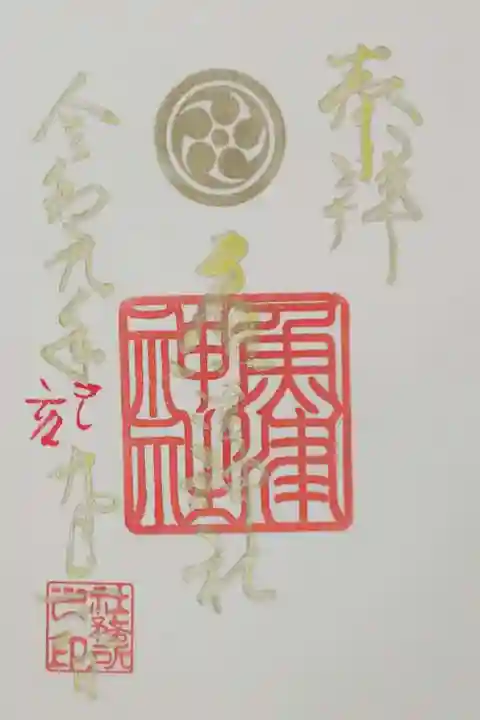 奉拝
魚津神社
魚津
神社
令和元年
己亥
九月
社務所
之印